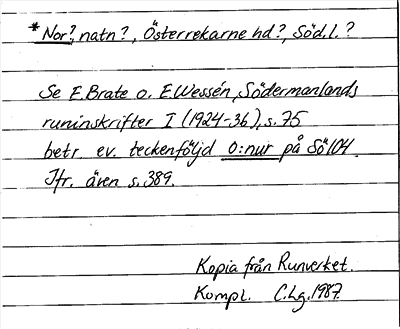 *Nor?, natn?, Österrekarne hd?, Söd.l.?
Se E.Brate o. E.Wessén, Södermanlands
runinskrifter I (1924-36), s. 75
betr. ev. teckenföljd o:nur på Sö104.
Jfr. även s. 389.
Kopia från Runverket.
Kompl. C.Lg. 1987.